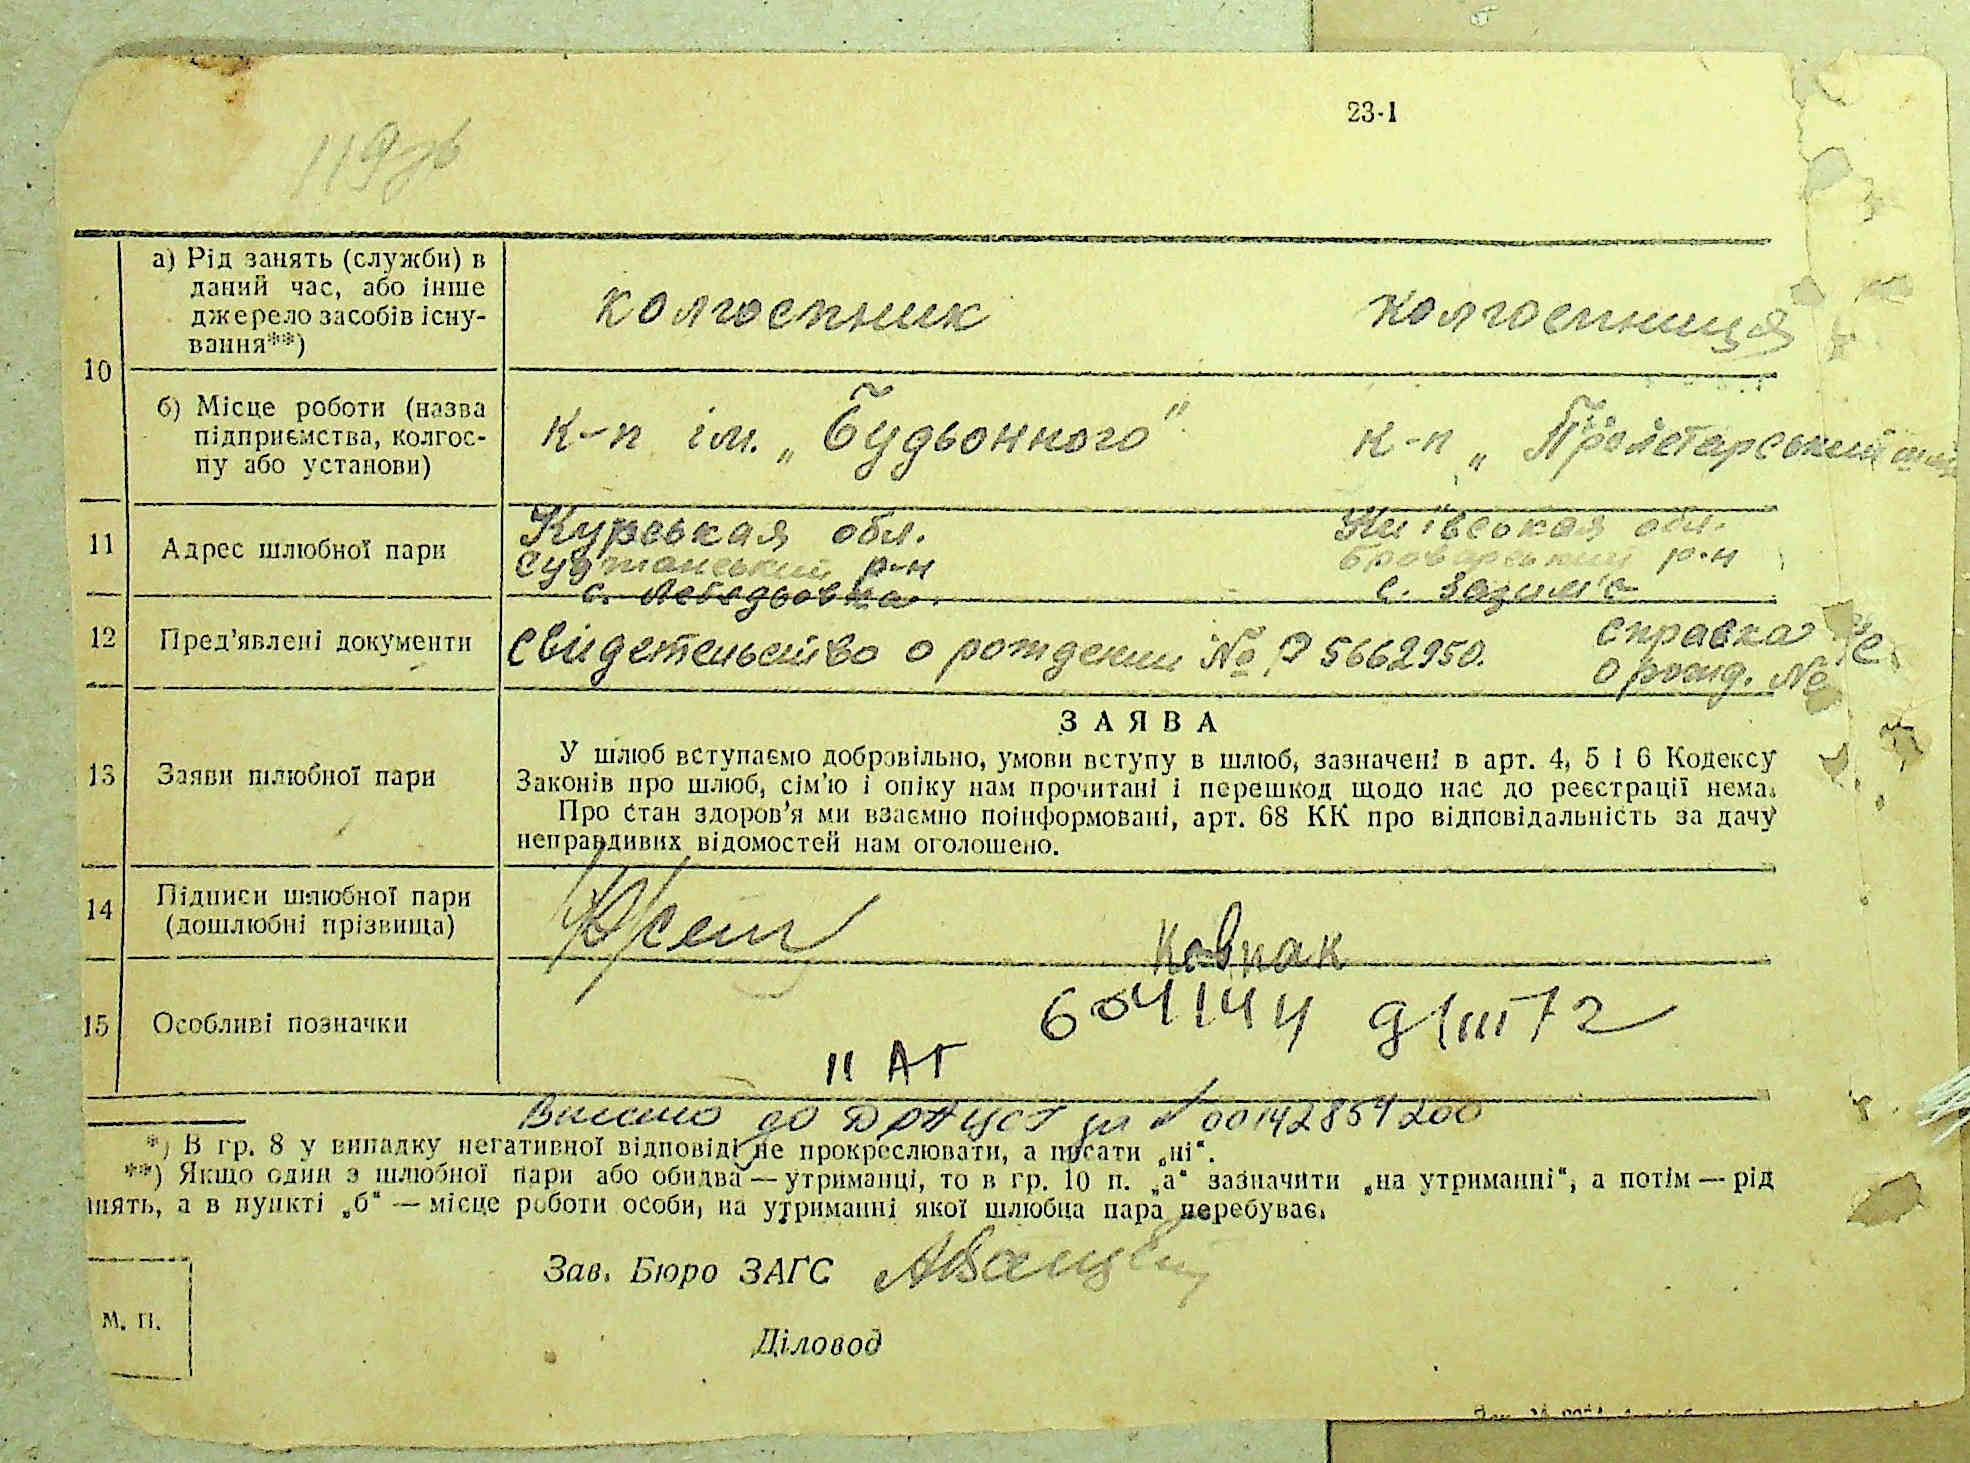 23-1
119зв
а) Рід занять (служби) в
даний час, або інше
джерело засобів існу-
вання**)
колгоспник
колгоспниця
10
б) Місце роботи (назва
підприємства, колгос-
пу або установи)
к-п ім. „Будьонного"
к-п „Пролетарський
11
Адрес шлюбної пари
Курськая обл.
р-н
с. Лебедьовка.
Київськая обл.
Броварський р-н
с. Зазим'є
12
Пред'явлені документи
Свидетельство о рождении № 5662950.
справка
о рожд. №
13
Заяви шлюбної пари
ЗАЯВА
У шлюб вступаємо добровільно, умови вступу в шлюб, зазначені в арт. 4, 5 і 6 Кодексу
Законів про шлюб, сім'ю і опіку нам прочитані і перешкод щодо нас до реєстрації нема.
Про стан здоров'я ми взаємно поінформовані, арт. 68 КК про відповідальність за дачу
неправдивих відомостей нам оголошено.
14
Підписи шлюбної пари
(дошлюбні прізвища)
Ковпак
15
Особливі позначки
604144 9/III 72
II АГ
до ДРАЦСГ за № 00142854200
*) В гр. 8 у випадку негативної відповіді не прокреслювати, а писати „ні".
**) Якщо один з шлюбної пари або обидва — утриманці, то в гр. 10 п. „а" зазначити „на утриманні", а потім — рід
нять, а в пункті „б" — місце роботи особи, на утриманні якої шлюбна пара перебуває.
Зав. Бюро ЗАГС
М. П.
Діловод